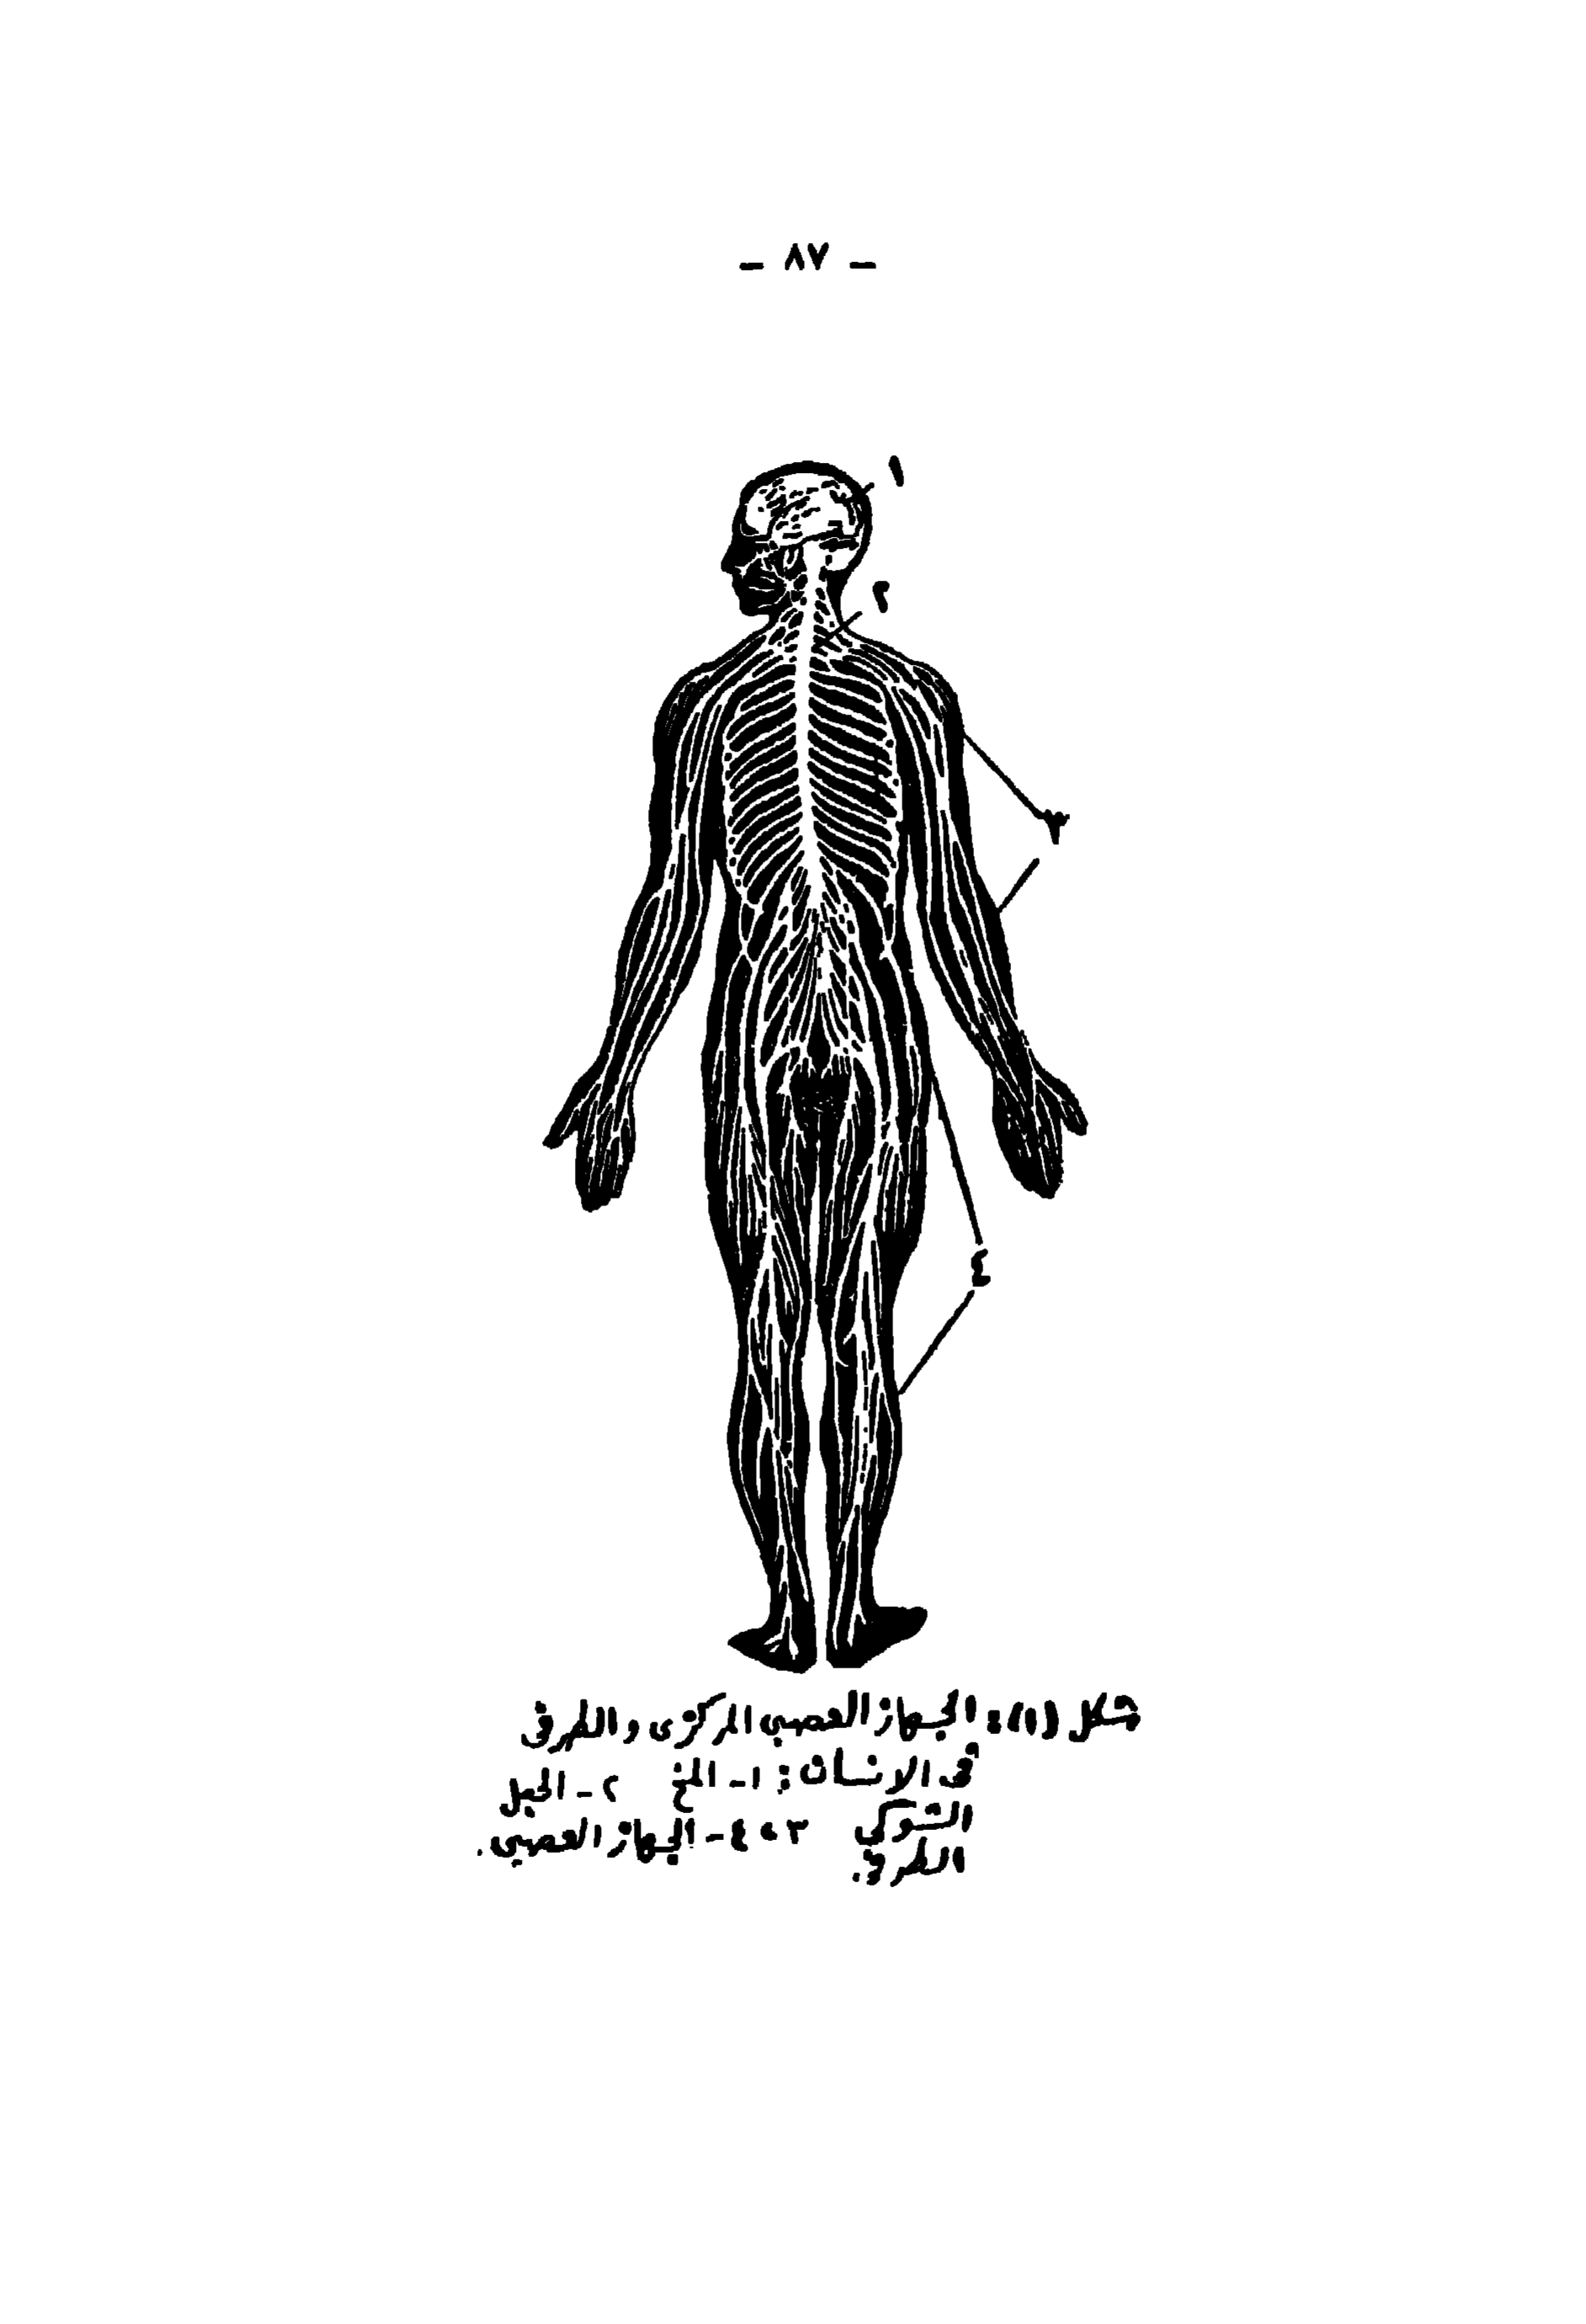 - ٨٧ -
١
٢
٣
٤
شكل (١): الجهاز العصبى المركزى والطرفى
فى الانسان: ١- المخ ٢- الحبل
الشوكى ٣، ٤- الجهاز العصبى
الطرفى.